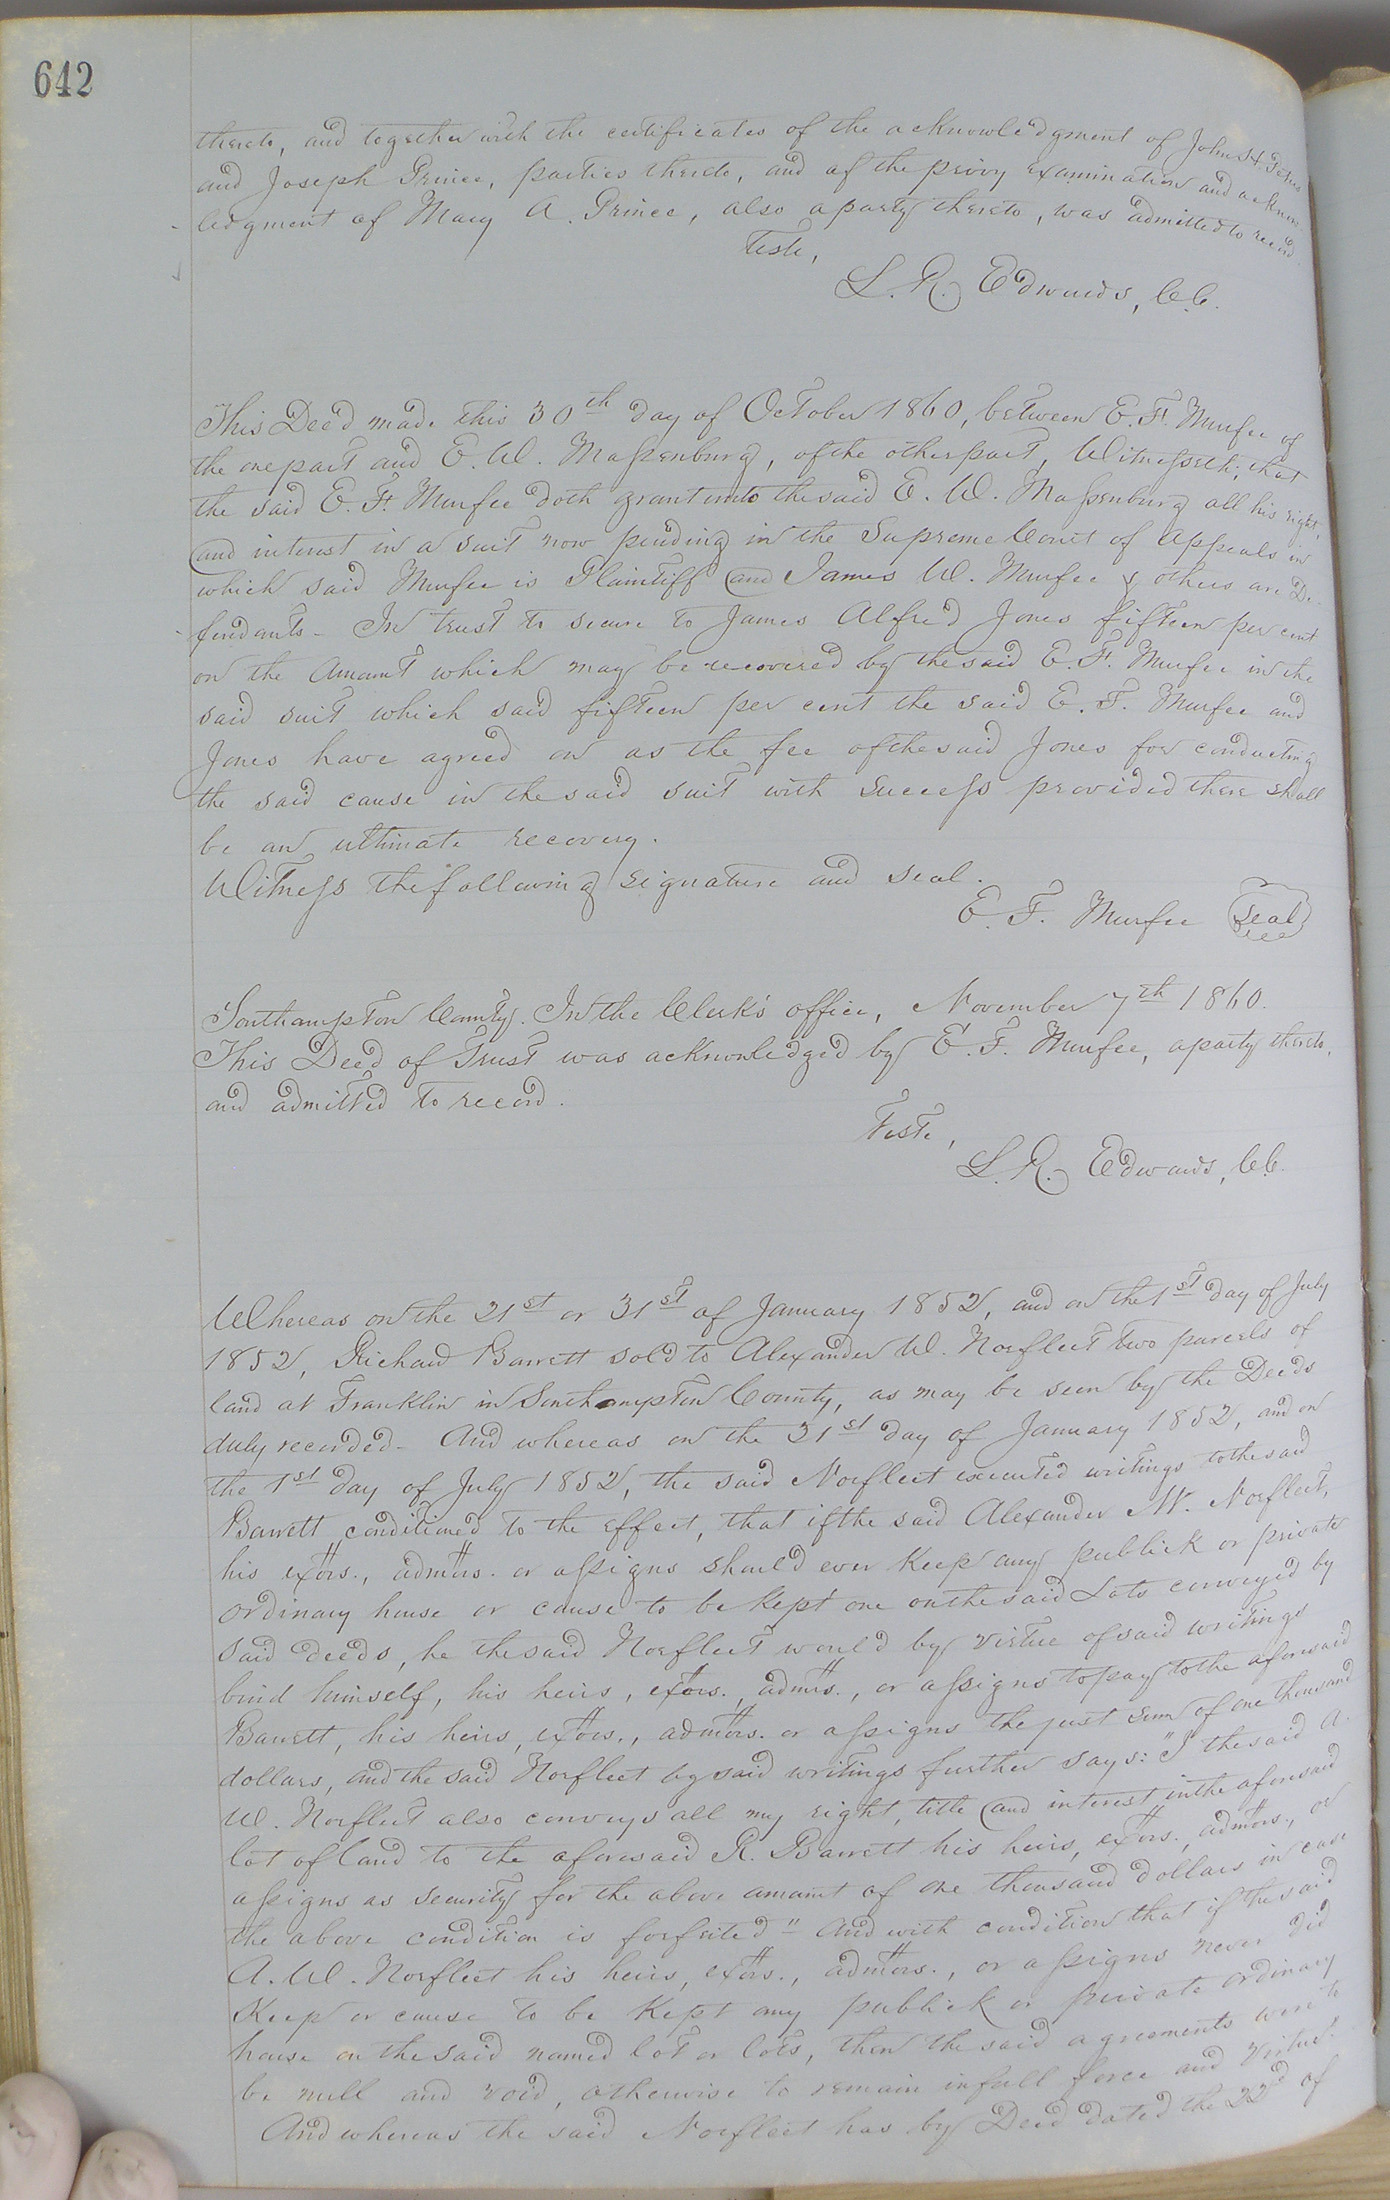 642
thereto, and together with the certificates of the acknowledgment of John
and Joseph Prince, parties thereto, and of the privy examination and acknow-
ledgment of Mary A. Prince, also a party thereto, was admitted to record.
Teste,
L. R. Edwards, C.C.
This Deed made this 30th day of October 1860, between E. F. Murfee of
the one part and E. W. Massenburg, of the other part, Witnesseth; that
the said E. F. Murfee doth grant unto the said E. W. Massenburg all his right,
and interest in a suit now pending in the Supreme Court of Appeals in
which said Murfee is Plaintiff and James W. Murfee & others are De-
fendants - In trust to secure to James Alfred Jones fifteen per cent
on the amount which may be recovered by the said E. F. Murfee in the
said suit which said fifteen per cent the said E. F. Murfee and
Jones have agreed on as the fee of the said Jones for conducting
the said cause in the said suit with success provided there shall
be an ultimate recovery.
Witness the following signature and seal.
E. F. Murfee Seal
Southampton County. In the Clerk's office, November 7th 1860.
This Deed of Trust was acknowledged by E. F. Murfee, a party thereto,
and admitted to record.
Teste,
L. R. Edwards, C.C.
Whereas on the 21st or 31st of January 1852, and on the 1st day of July
1852, Richard Barrett sold to Alexander W. Norfleet two parcels of
land at Franklin in Southampton County, as may be seen by the Deeds
duly recorded - And whereas on the 31st day of January 1852, and on
the 1st day of July 1852, the said Norfleet executed writings to the said
Barrett conditioned to the effect, that if the said Alexander W. Norfleet,
his exors., admors. or assigns should ever keep any publick or private
ordinary house or cause to be kept one on the said Lots conveyed by
said deeds, he the said Norfleet would by virtue of said writings
bind himself, his heirs, exors., admrs., or assigns to pay to the aforesaid
Barrett, his heirs, exors., admors. or assigns the just sum of one thousand
dollars, and the said Norfleet by said writings further says: "I the said A.
W. Norfleet also conveys all my right, title and interest in the aforesaid
lot of land to the aforesaid R. Barrett his heirs, exors., admors., or
assigns as security for the above amount of one thousand dollars in case
the above condition is forfeited" And with condition that if the said
A. W. Norfleet his heirs, exors., admors., or assigns never did
Keep or cause to be kept any publick or private ordinary
house on the said named lot or lots, then the said agreements were to
be null and void, otherwise to remain in full force and virtue.
And whereas the said Norfleet has by Deed dated the 22d of